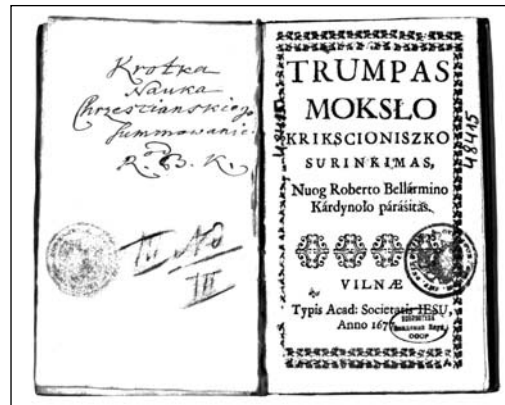 Krotka
Nauka
Chrzestianskiego
Summowanie.
od
R. B. K.
III No
III
TRUMPAS
MOKSŁO
KRIKSCIONISZKO
SURINKIMAS,
Nuog Roberto Bellármino
Kárdynoło páráśitas.
VILNÆ
Typis Acad: Societatis IESU,
Anno 1677
48415
48415